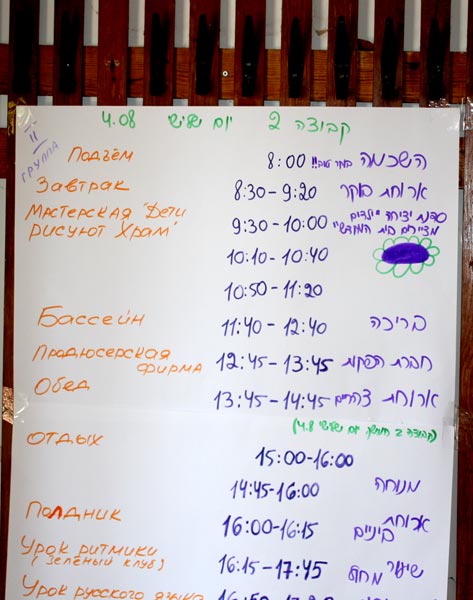 קבוצה 2 יום שלישי 4.08
II
ГРУППА
Подъём 8:00 בוקר טוב!! השכמה
Завтрак 8:30-9:20 ארוחת בוקר
Мастерская "Дети 9:30-10:00 סדנת יצירה "ילדים
рисуют Храм" מציירים בית המקדש"
10:10-10:40
10:50-11:20
Бассейн 11:40-12:40 בריכה
Продюсерская 12:45-13:45 חברת הפקות
фирма
Обед 13:45-14:45 ארוחת צהריים
(קבוצה 2 המשך יום שלישי 4.8)
Отдых 15:00-16:00
14:45-16:00 מנוחה
Полдник 16:00-16:15 ארוחת
ביניים
Урок ритмики 16:15-17:45 שיעור
(зелёный клуб) מחול
Урок русского языка